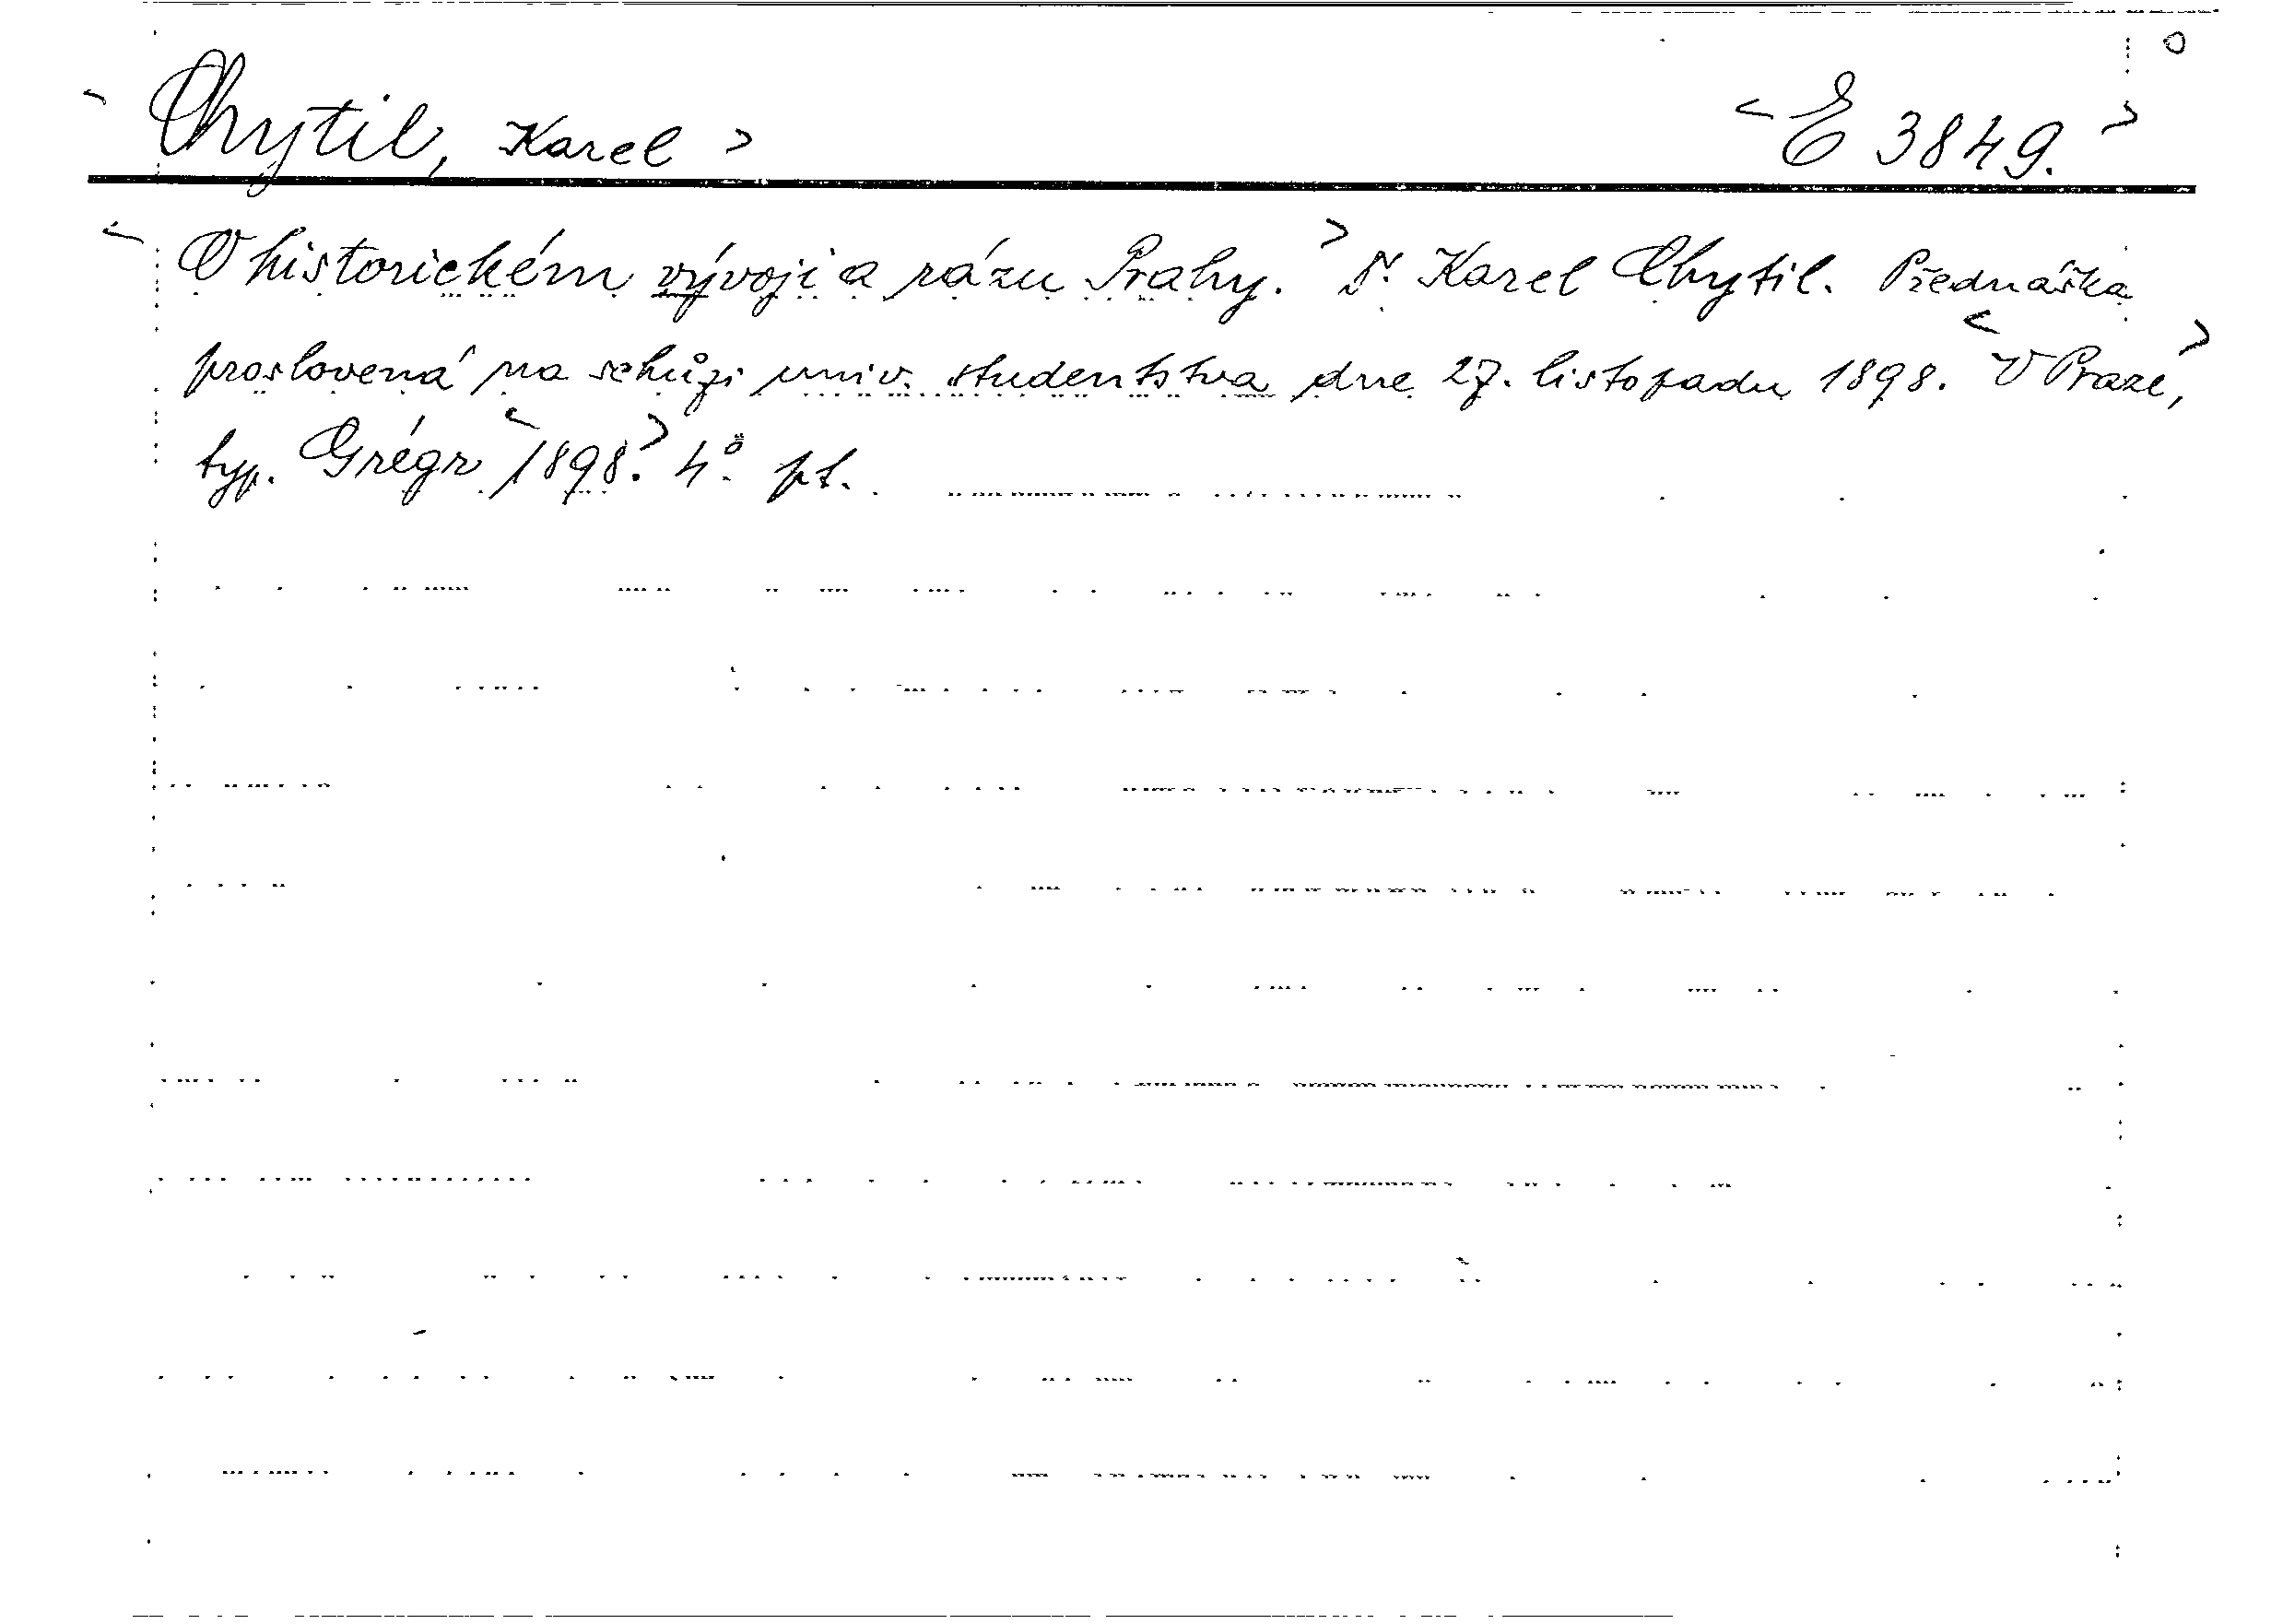 < Chytil, Karel > < E 3849. >
< O historickém vývoji a rázu Prahy. > Dr. Karel Chytil. Přednáška
proslovená na schůzi univ. studentstva dne 27. listopadu 1898. < V Praze, >
typ. Grégr < 1898. > 4° pt.